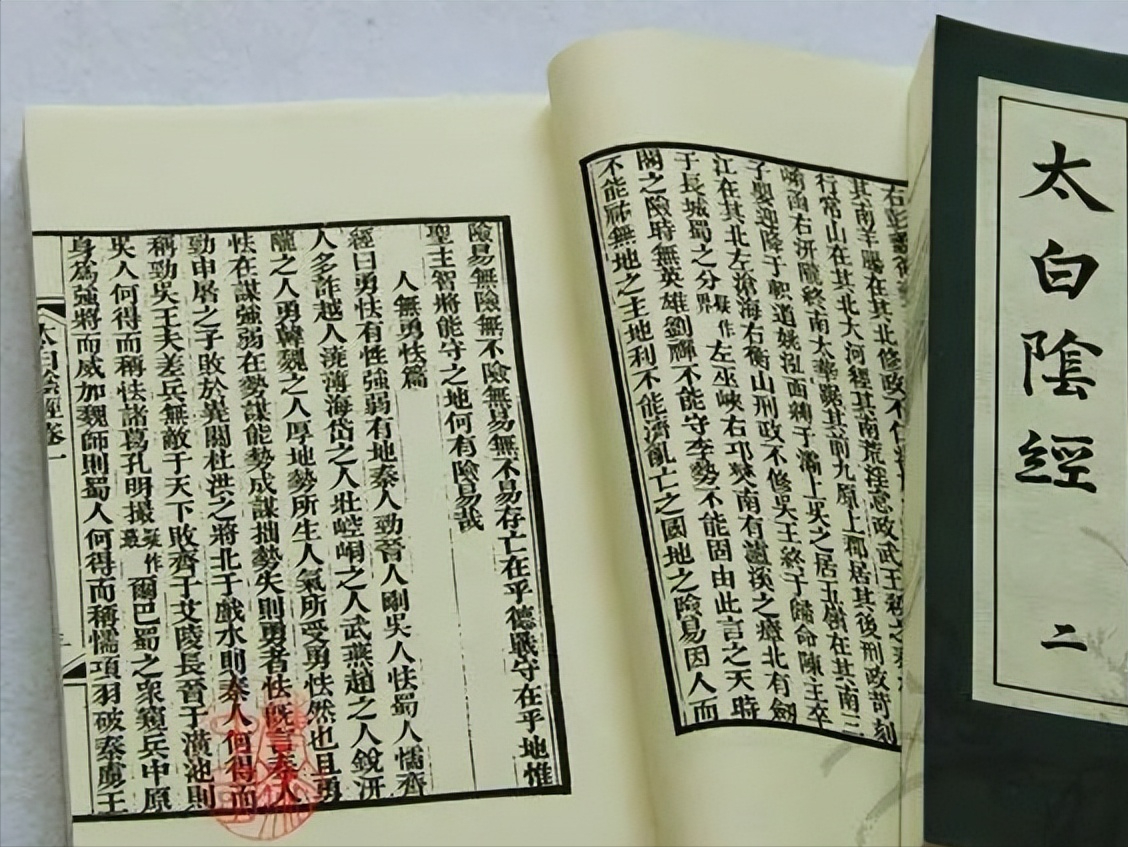 太白陰經
二
右彭蠡
其南羊腸在其北修政不仁
行常山在其北大河經其南荒淫怠政武王殺之秦
崤函右汧隴終南太華踞其前九原上郡居其後刑政苛刻
子嬰迎降于軹道姚泓面縛于灞上吳之居五嶺在其南三
江在其北左滄海右衡山刑政不修吳王終于歸命陳主卒
于長城蜀之分疑作界左巫峽右邛僰南有瀘溪之瘴北有劍
閣之險時無英雄劉禪不能守李勢不能固由此言之天時
不能祐無地之主地利不能濟亂亡之國地之險易因人而
險易無險無不險無易無不易存亡在乎德戰守在乎地惟
聖主智將能守之地何有險易哉
人無勇怯篇
經曰勇怯有性強弱有地秦人勁晉人剛吳人怯蜀人懦齊
人多詐越人澆薄海岱之人壯崆峒之人武燕趙之人銳汧
隴之人勇韓魏之人厚地勢所生人氣所受勇怯然也且勇
怯在謀強弱在勢謀能勢成謀拙勢失則勇者怯既言秦人
勁申屠之子敗於嶢關杜洪之將北于戲水則秦人何得而
稱勁吳王夫差兵無敵于天下敗齊于艾陵長晉于潢池則
吳人何得而稱怯諸葛孔明撮疑作最爾巴蜀之眾窺兵中原
身為強將而威加魏師則蜀人何得而稱懦項羽破秦虜王
太白陰經卷一